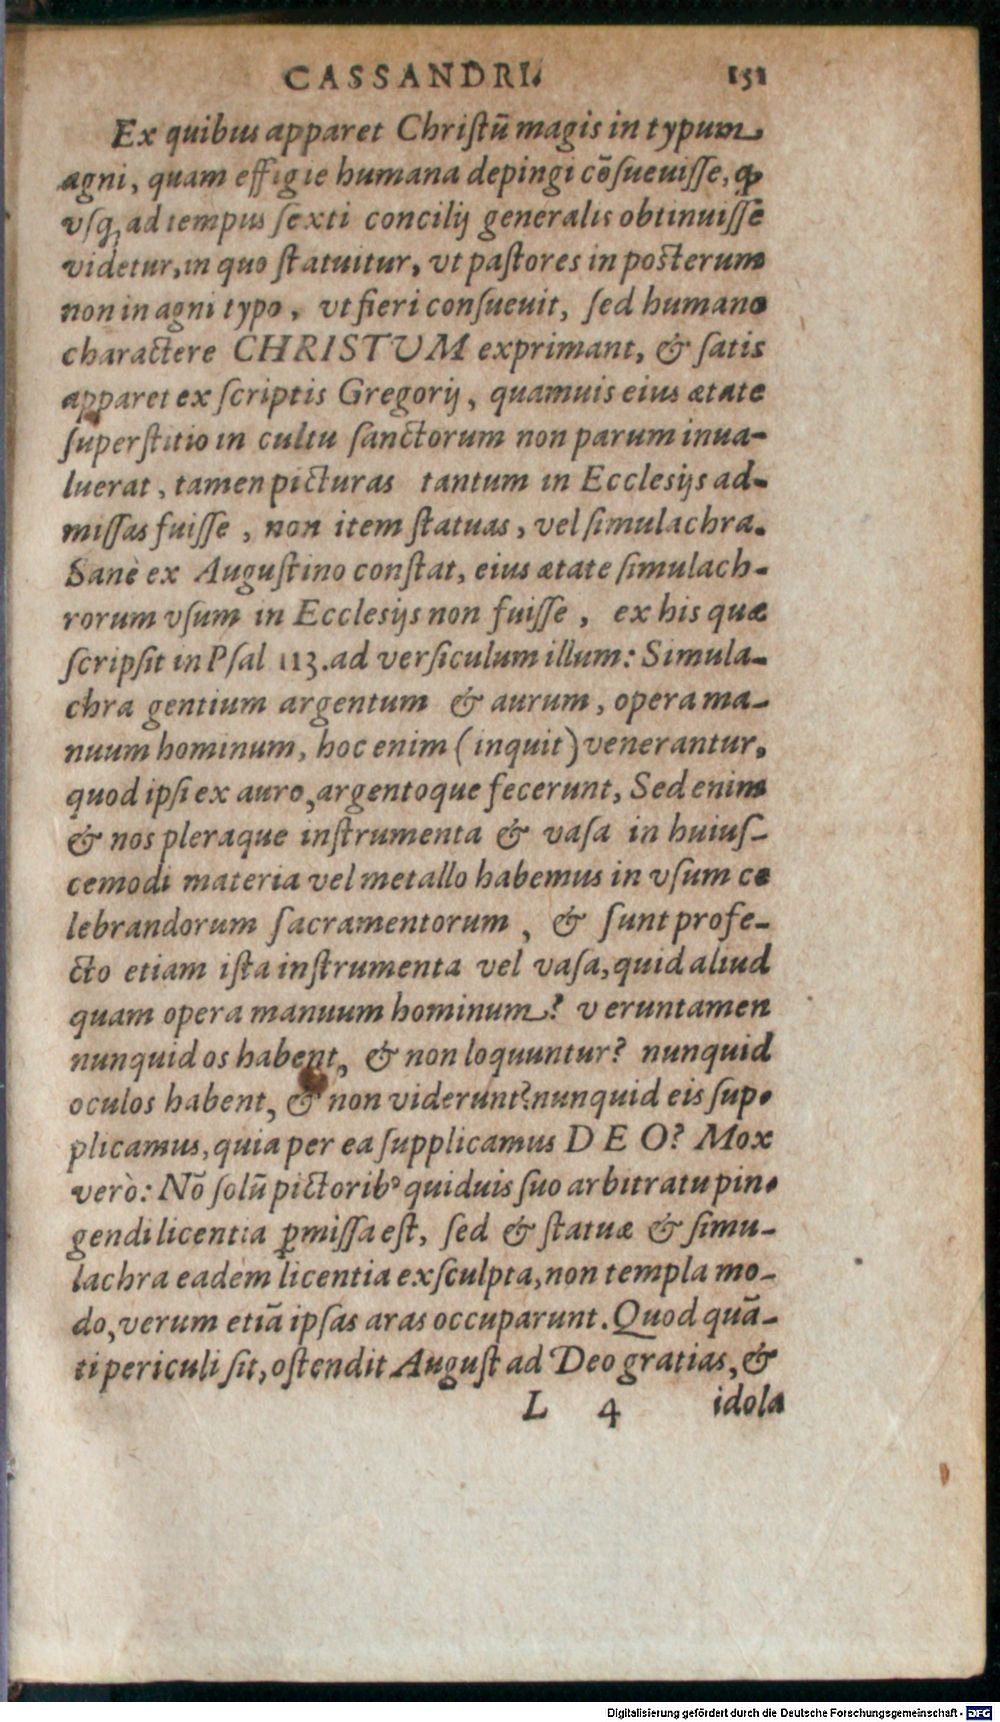 CASSANDRI. 151
Ex quibus apparet Chriſtū magis in typum
agni, quam effigie humana depingi cōſueuiſſe, ꝙ
vſq; ad tempus ſexti concilij generalis obtinuiſſe
videtur, in quo ſtatuitur, vt paſtores in poſterum
non in agni typo, vt fieri conſueuit, ſed humano
charactere CHRISTUM exprimant, & ſatis
apparet ex ſcriptis Gregorij, quamuis eius ætate
ſuperſtitio in cultu ſanctorum non parum inua-
luerat, tamen picturas tantum in Eccleſijs ad-
miſſas fuiſſe, non item ſtatuas, vel ſimulachra.
Sanè ex Auguſtino conſtat, eius ætate ſimulach-
rorum vſum in Eccleſijs non fuiſſe, ex his quæ
ſcripſit in Pſal 113. ad verſiculum illum: Simula-
chra gentium argentum & aurum, opera ma-
nuum hominum, hoc enim (inquit) venerantur,
quod ipſi ex auro, argentoque fecerunt, Sed enim
& nos pleraque inſtrumenta & vaſa in huiuſ-
cemodi materia vel metallo habemus in vſum ce
lebrandorum ſacramentorum, & ſunt profe-
cto etiam iſta inſtrumenta vel vaſa, quid aliud
quam opera manuum hominum? veruntamen
nunquid os habent, & non loquuntur? nunquid
oculos habent, & non viderunt? nunquid eis ſup-
plicamus, quia per ea ſupplicamus DEO? Mox
verò: Nō ſolū pictorib⁹ quiduis ſuo arbitratu pin-
gendi licentia ꝑmiſſa eſt, ſed & ſtatuæ & ſimu-
lachra eadem licentia exſculpta, non templa mo-
do, verum etiā ipſas aras occuparunt. Quod quā-
ti periculi ſit, oſtendit Auguſt ad Deo gratias, &
L 4 idola
Digitalisierung gefördert durch die Deutsche Forschungsgemeinschaft - DFG